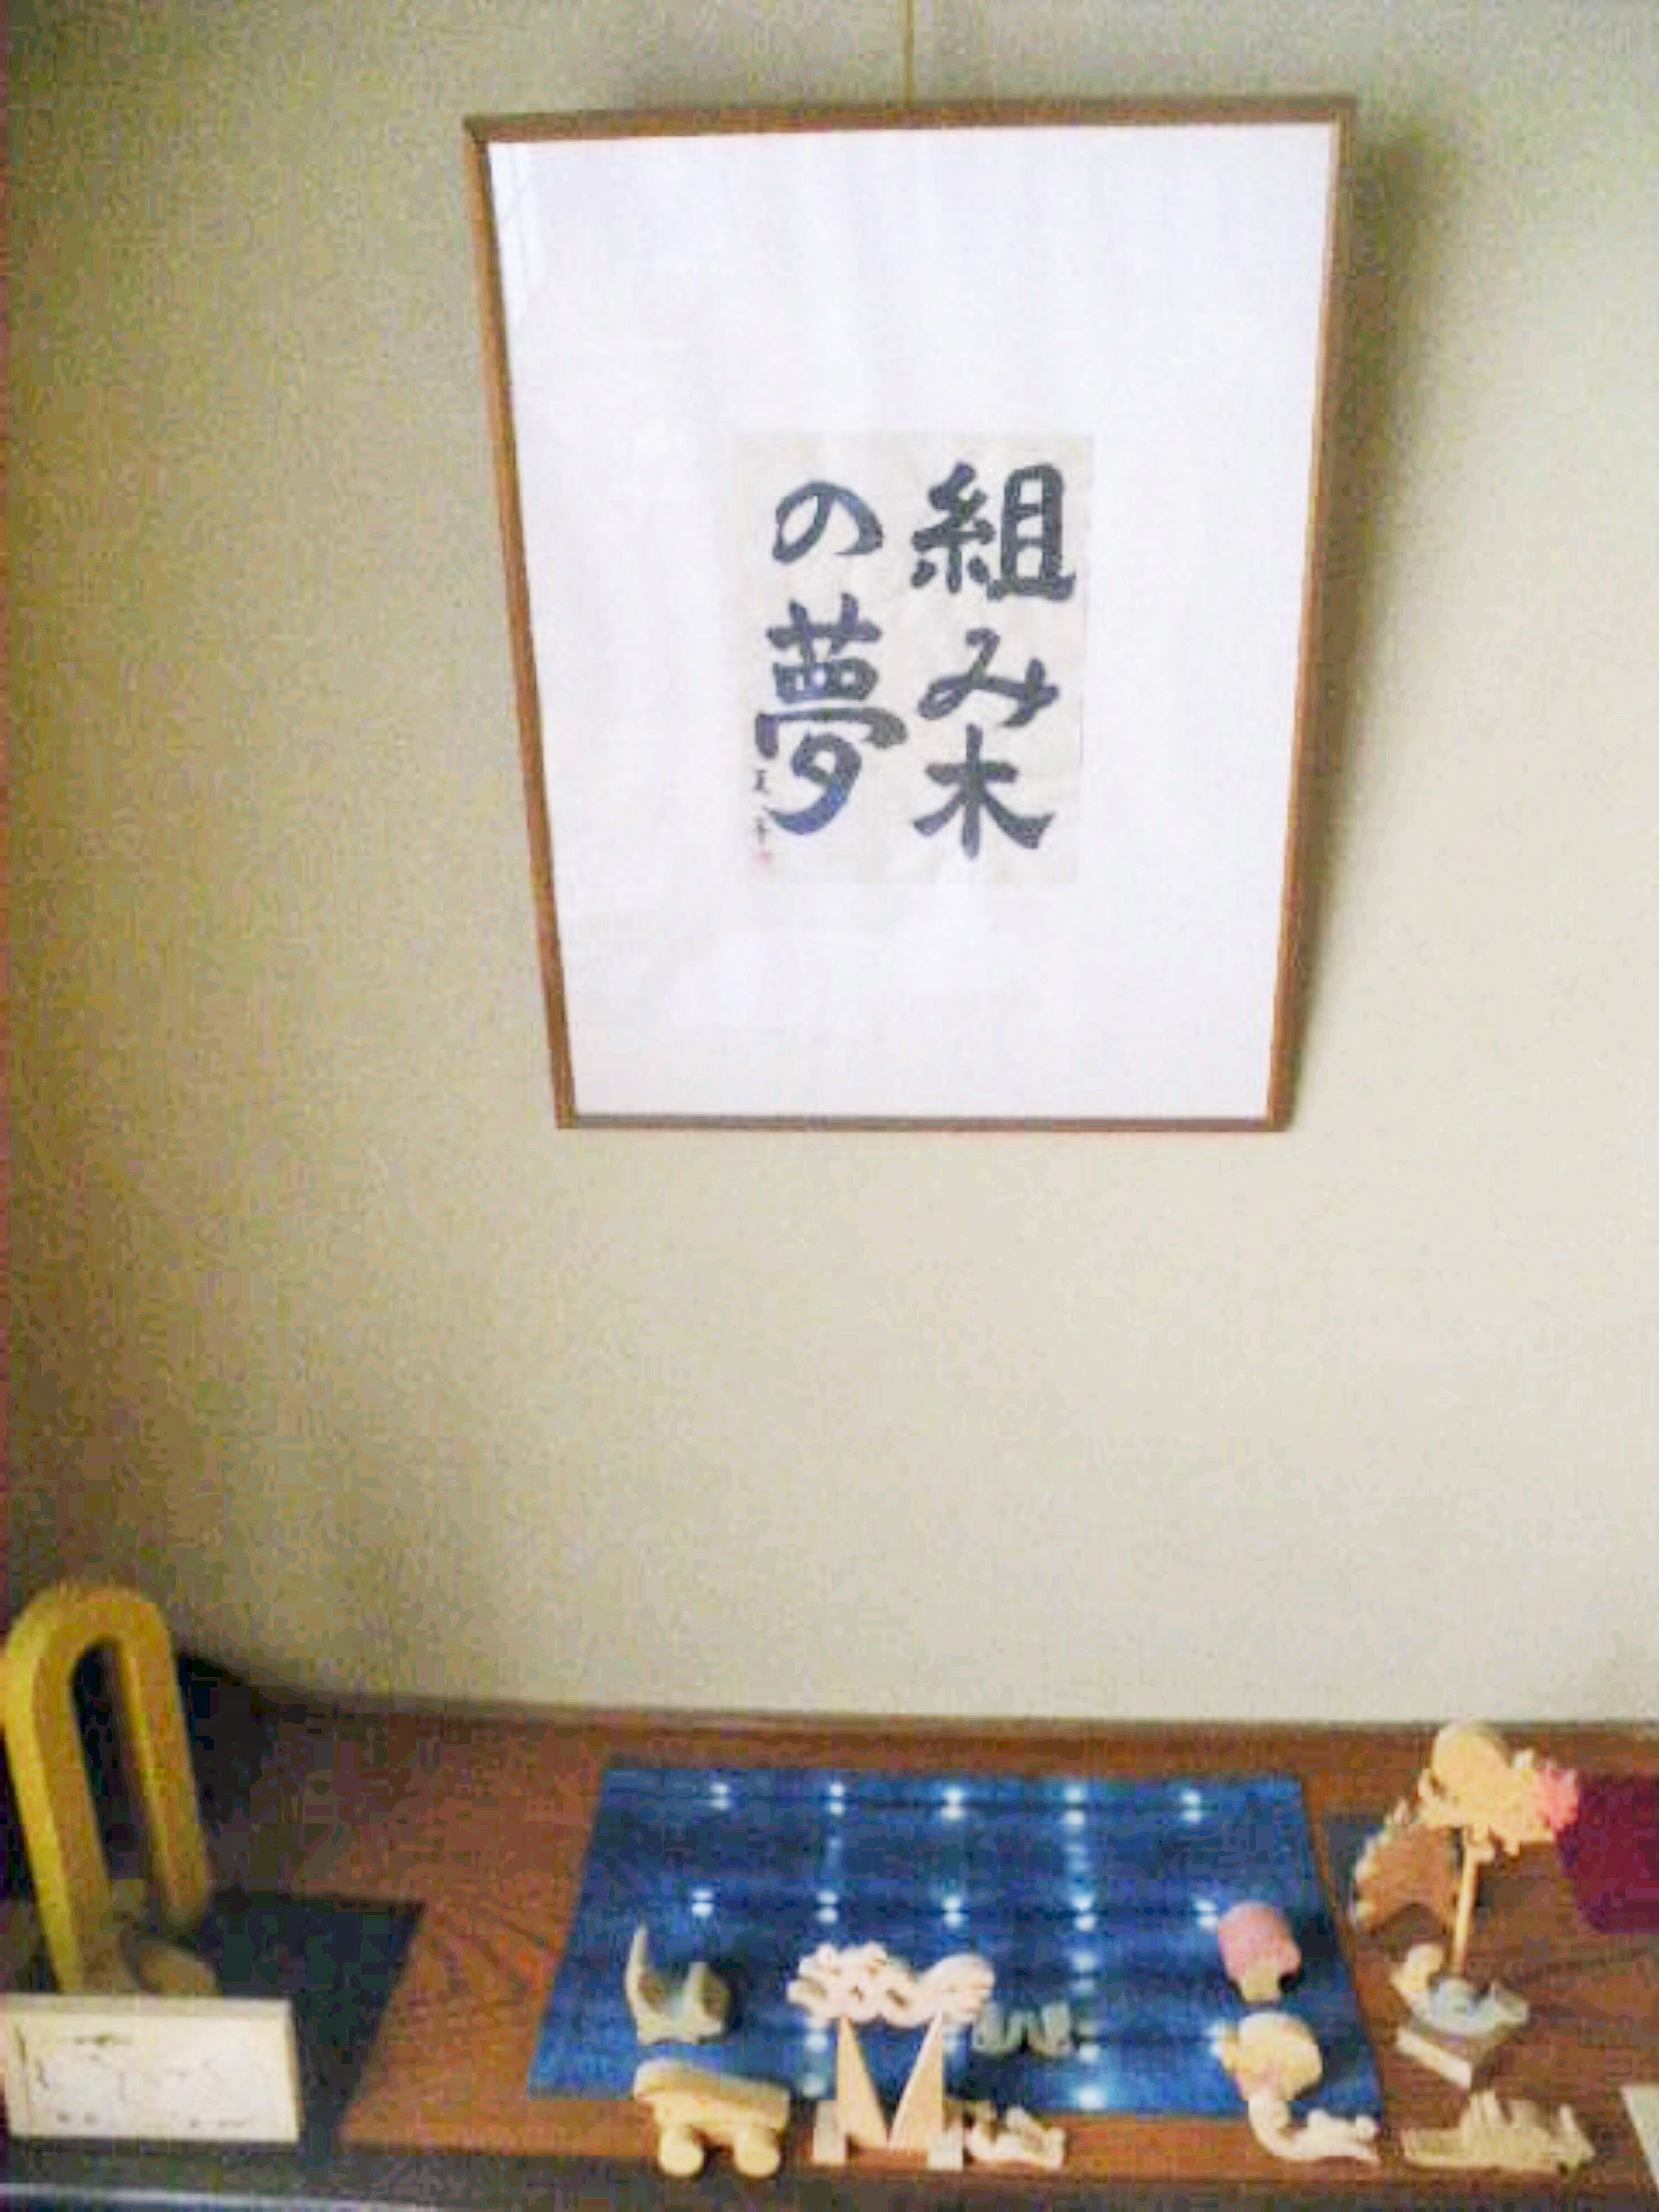 組み木
の夢